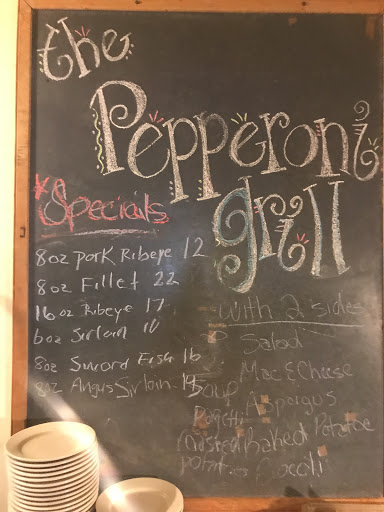 the
Pepperoni
grill
*Specials
8oz Pork Ribeye 12
8oz Fillet 22
16oz Ribeye 17
6oz Sirloin 10
8oz Sword Fish 16
8oz Angus Sirloin - 14
with 2 sides
Salad
Soup Mac & Cheese
Aspargus
roasted Baked Potatoe
potatoes Broccoli